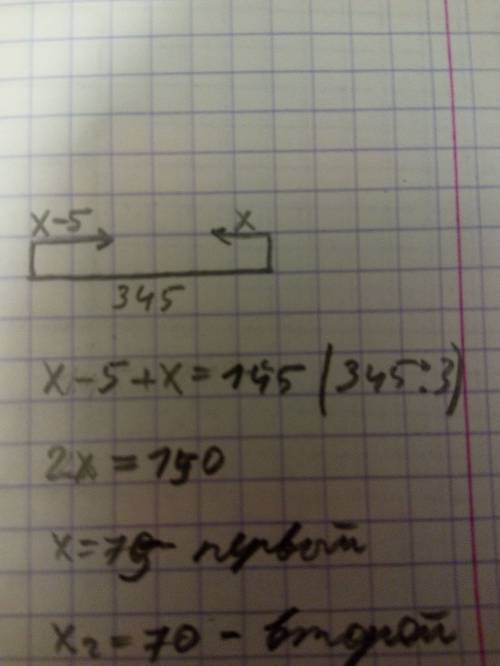 x-5 x
345
x-5+x=145 (345:3)
2x=150
x=75 - первый
x₂=70 - второй